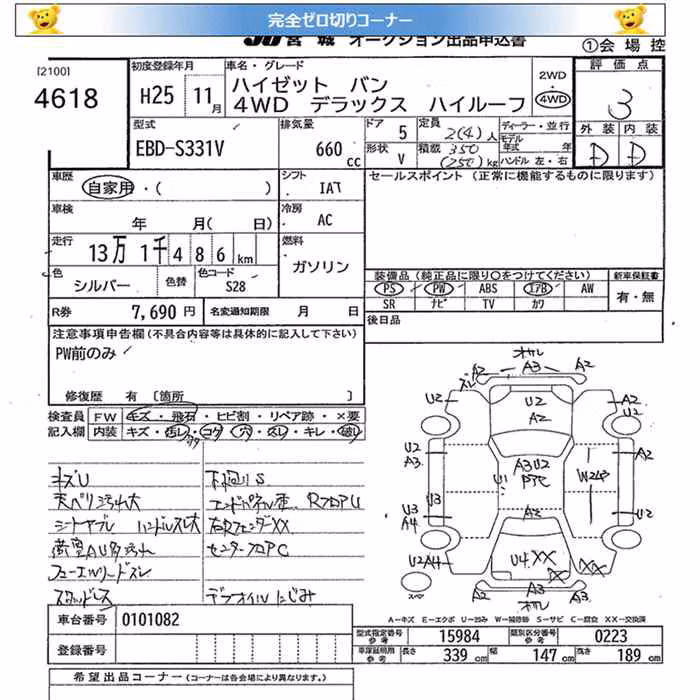 完全ゼロ切りコーナー
JU宮城 オークション出品申込書
①会場控
[2100]
4618
初度登録年月
H25 11月
車名・グレード
ハイゼット バン
4WD デラックス ハイルーフ
2WD
4WD
評価点
3
外装 内装
D D
型式
EBD-S331V
排気量
660cc
ドア 5
形状 V
定員 2(4)人
積載 350(250)kg
ディーラー・並行
モデル年式 年
ハンドル 左・右
車歴
自家用・( )
シフト IAT
車検
年 月( 日)
冷房 AC
走行
13万1千486km
燃料 ガソリン
色 シルバー
色替
色コード S28
R券 7,690円
名変通知期限 月 日
セールスポイント (正常に機能するものに限ります)
装備品 (純正品に限り○をつけてください)
PS PW ABS エアB AW
SR ナビ TV カワ
新車保証書
有・無
後日品
注意事項申告欄 (不具合内容等は具体的に記入して下さい)
PW前のみ
修復歴 有 [箇所 ]
検査員記入欄
FW キズ・飛石・ヒビ割・リペア跡・×要
内装 キズ・汚レ・コゲ・穴・スレ・キレ・破レ
キズU
天ベリ汚れ大
シートヤブレ ハンドルスレ大
荷室AU多汚れ
フューエルリードズレ
スタッドレス
下回りS
エンドパネル歪 RフロアU
右FフェンダーXX
センターフロアC
デフオイルにじみ
オサレ
A2 A3 A2
ズレ
U2 U2 A2
A2
U2 A3 A2
U1 A3 U2
W2 A3
U3
U3 A4 A2 U2
U2 A4 U4 XX XX
スペア
A2 A3 A3
オサレ
A-キズ E-エクボ U-凹み W-補修跡 S-サビ C-腐食 XX-交換済
車台番号 0101082
登録番号
型式指定番号 参考 15984
類別区分番号 参考 0223
車庫証明用 参考
長さ 339cm 幅 147cm 高さ 189cm
希望出品コーナー (コーナーは各会場により異なります。)